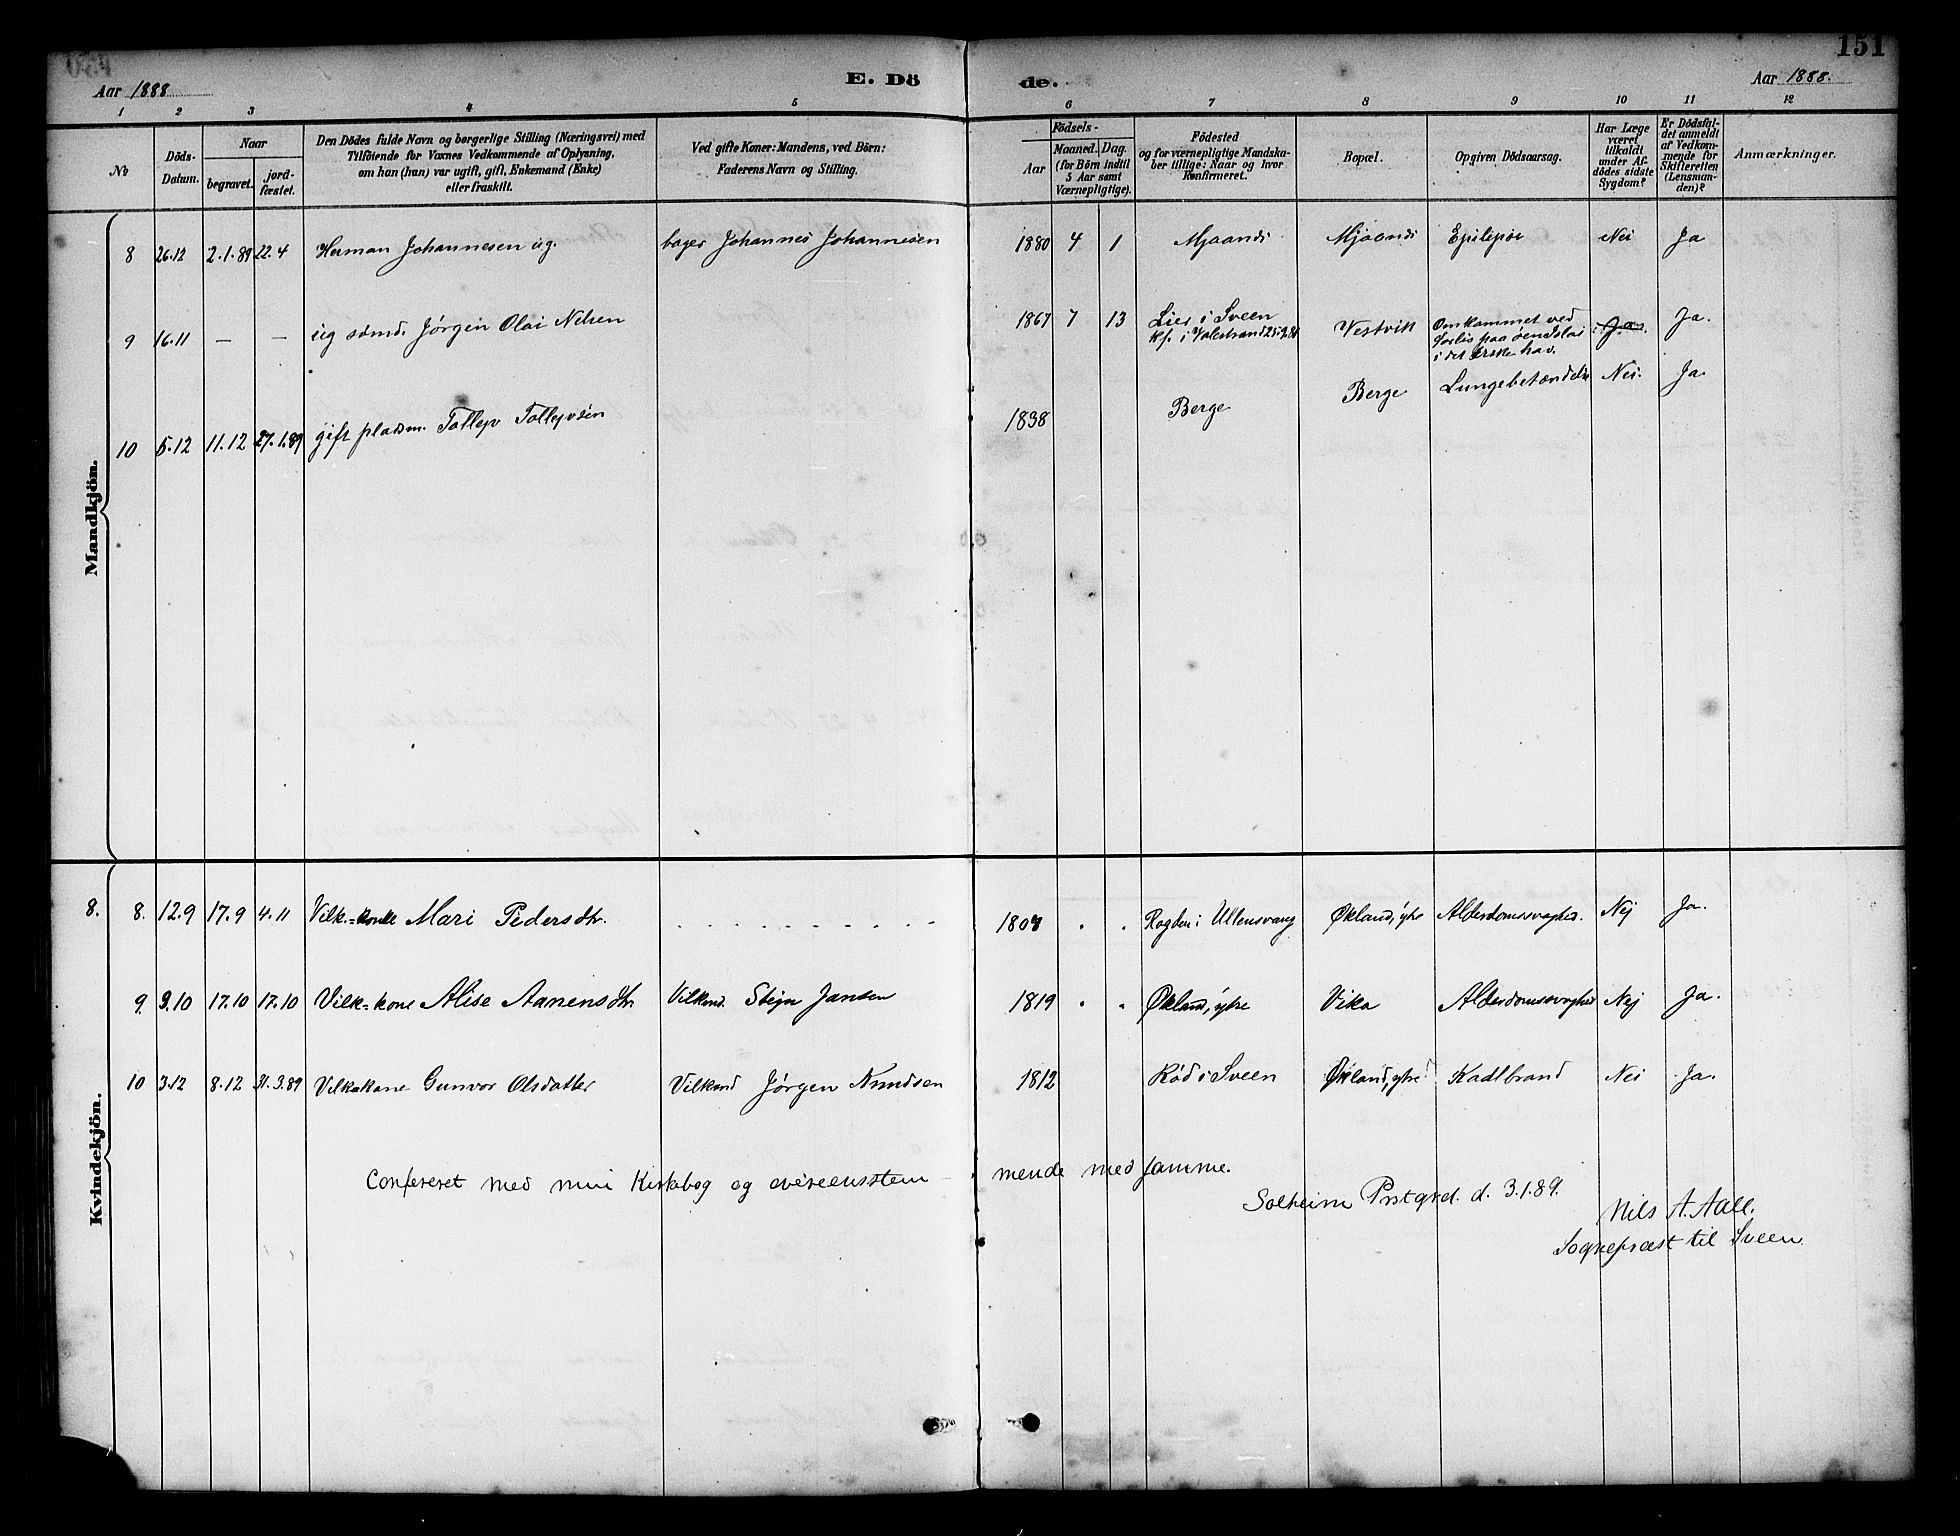 151
Aar 1888
E. Dö
de.
Aar 1888.
1 2 3 4 5 6 7 8 9 10 11 12
№
Döds-
Datum.
Naar
begravet.
jord-
fæstet.
Den Dödes fulde Navn og borgerlige Stilling (Næringsvei) med
Tilföiende for Voxnes Vedkommende af Oplysning,
om han (hun) var ugift, gift, Enkemand (Enke)
eller fraskilt.
Ved gifte Koner: Mandens, ved Börn:
Faderens Navn og Stilling.
Födsels-
Aar
Maaned. Dag.
(for Börn indtil
5 Aar samt
Værnepligtige).
Födested
og for værnepligtige Mandska-
ber tillige: Naar og hvor
Konfirmeret.
Bopæl.
Opgiven Dödsaarsag.
Har Læge
været
tilkaldt
under Af-
dödes sidste
Sygdom?
Er Dödsfal-
det anmeldt
af Vedkom-
mende for
Skifteretten
(Lensman-
den)?
Anmærkninger.
Mandkjön.
8 26.12 2.1.89 22.4 Herman Johannesen ug. Johannes Johannesen 1880 4 1 Mjaands Mjaands Epilepsie Nei Ja
9 16.11 — — ug sømd. Jørgen Olai Nelsen 1867 7 13 Lier i Sveen Vestvik Omkommet ved Ja Ja.
kf. i Valestrand
Forlis paa
i det Irske hav.
10 5.12 11.12 27.1.89 gift pladsm. Tollev Tollevsen 1838 Berge Berge Lungebetændelse Nei. Ja.
Kvindekjön.
8. 8. 12.9 17.9 4.11 Vilk.=konke Mari Pedersdtr. . . . . . . . . . . 180 " " Ragden i Ullensvang Økland, ytre Alderdomssvaghed. Nej Ja.
9 9.10 17.10 17.10 Vilk=kone Alise Aanensdtr. Vilkmd. Stejn Jansen 1819 " " Økland, ytre Vika Alderdomssvaghed Nej Ja.
10 3.12 8.12 31.3.89 Vilkakone Gunvor Olsdatter Vilkmd Jørgen Knudsen 1812 Rød i Sveen Økland, ytre Kadlbrand Nei Ja.
Confereret med min Kirkebog og overeensstem- mende med samme.
Solheim Prstgrd. d. 3.1.89.
Nils A. Aall.
Sognepræst til Sveen.